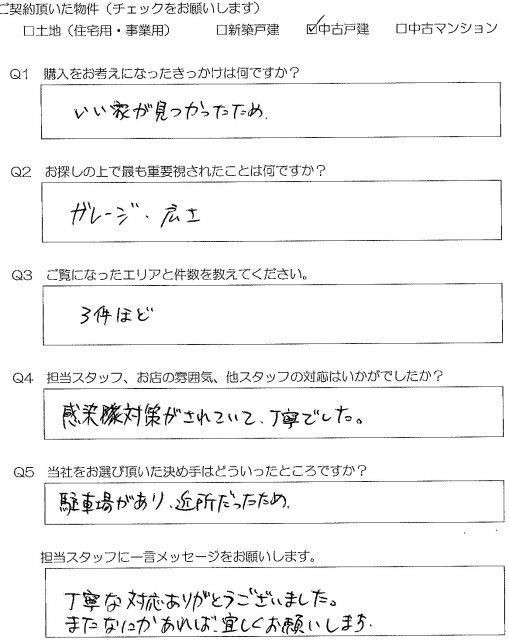 ご契約頂いた物件（チェックをお願いします）
□土地（住宅用・事業用） □新築戸建 ☑中古戸建 □中古マンション
Q1 購入をお考えになったきっかけは何ですか？
いい家が見つかったため．
Q2 お探しの上で最も重要視されたことは何ですか？
ガレージ・広さ
Q3 ご覧になったエリアと件数を教えてください。
3件ほど
Q4 担当スタッフ、お店の雰囲気、他スタッフの対応はいかがでしたか？
感染対策がされていて、丁寧でした。
Q5 当社をお選び頂いた決め手はどういったところですか？
駐車場があり、近所だったため．
担当スタッフに一言メッセージをお願いします。
丁寧な対応ありがとうございました。
またなにかあれば宜しくお願いします．